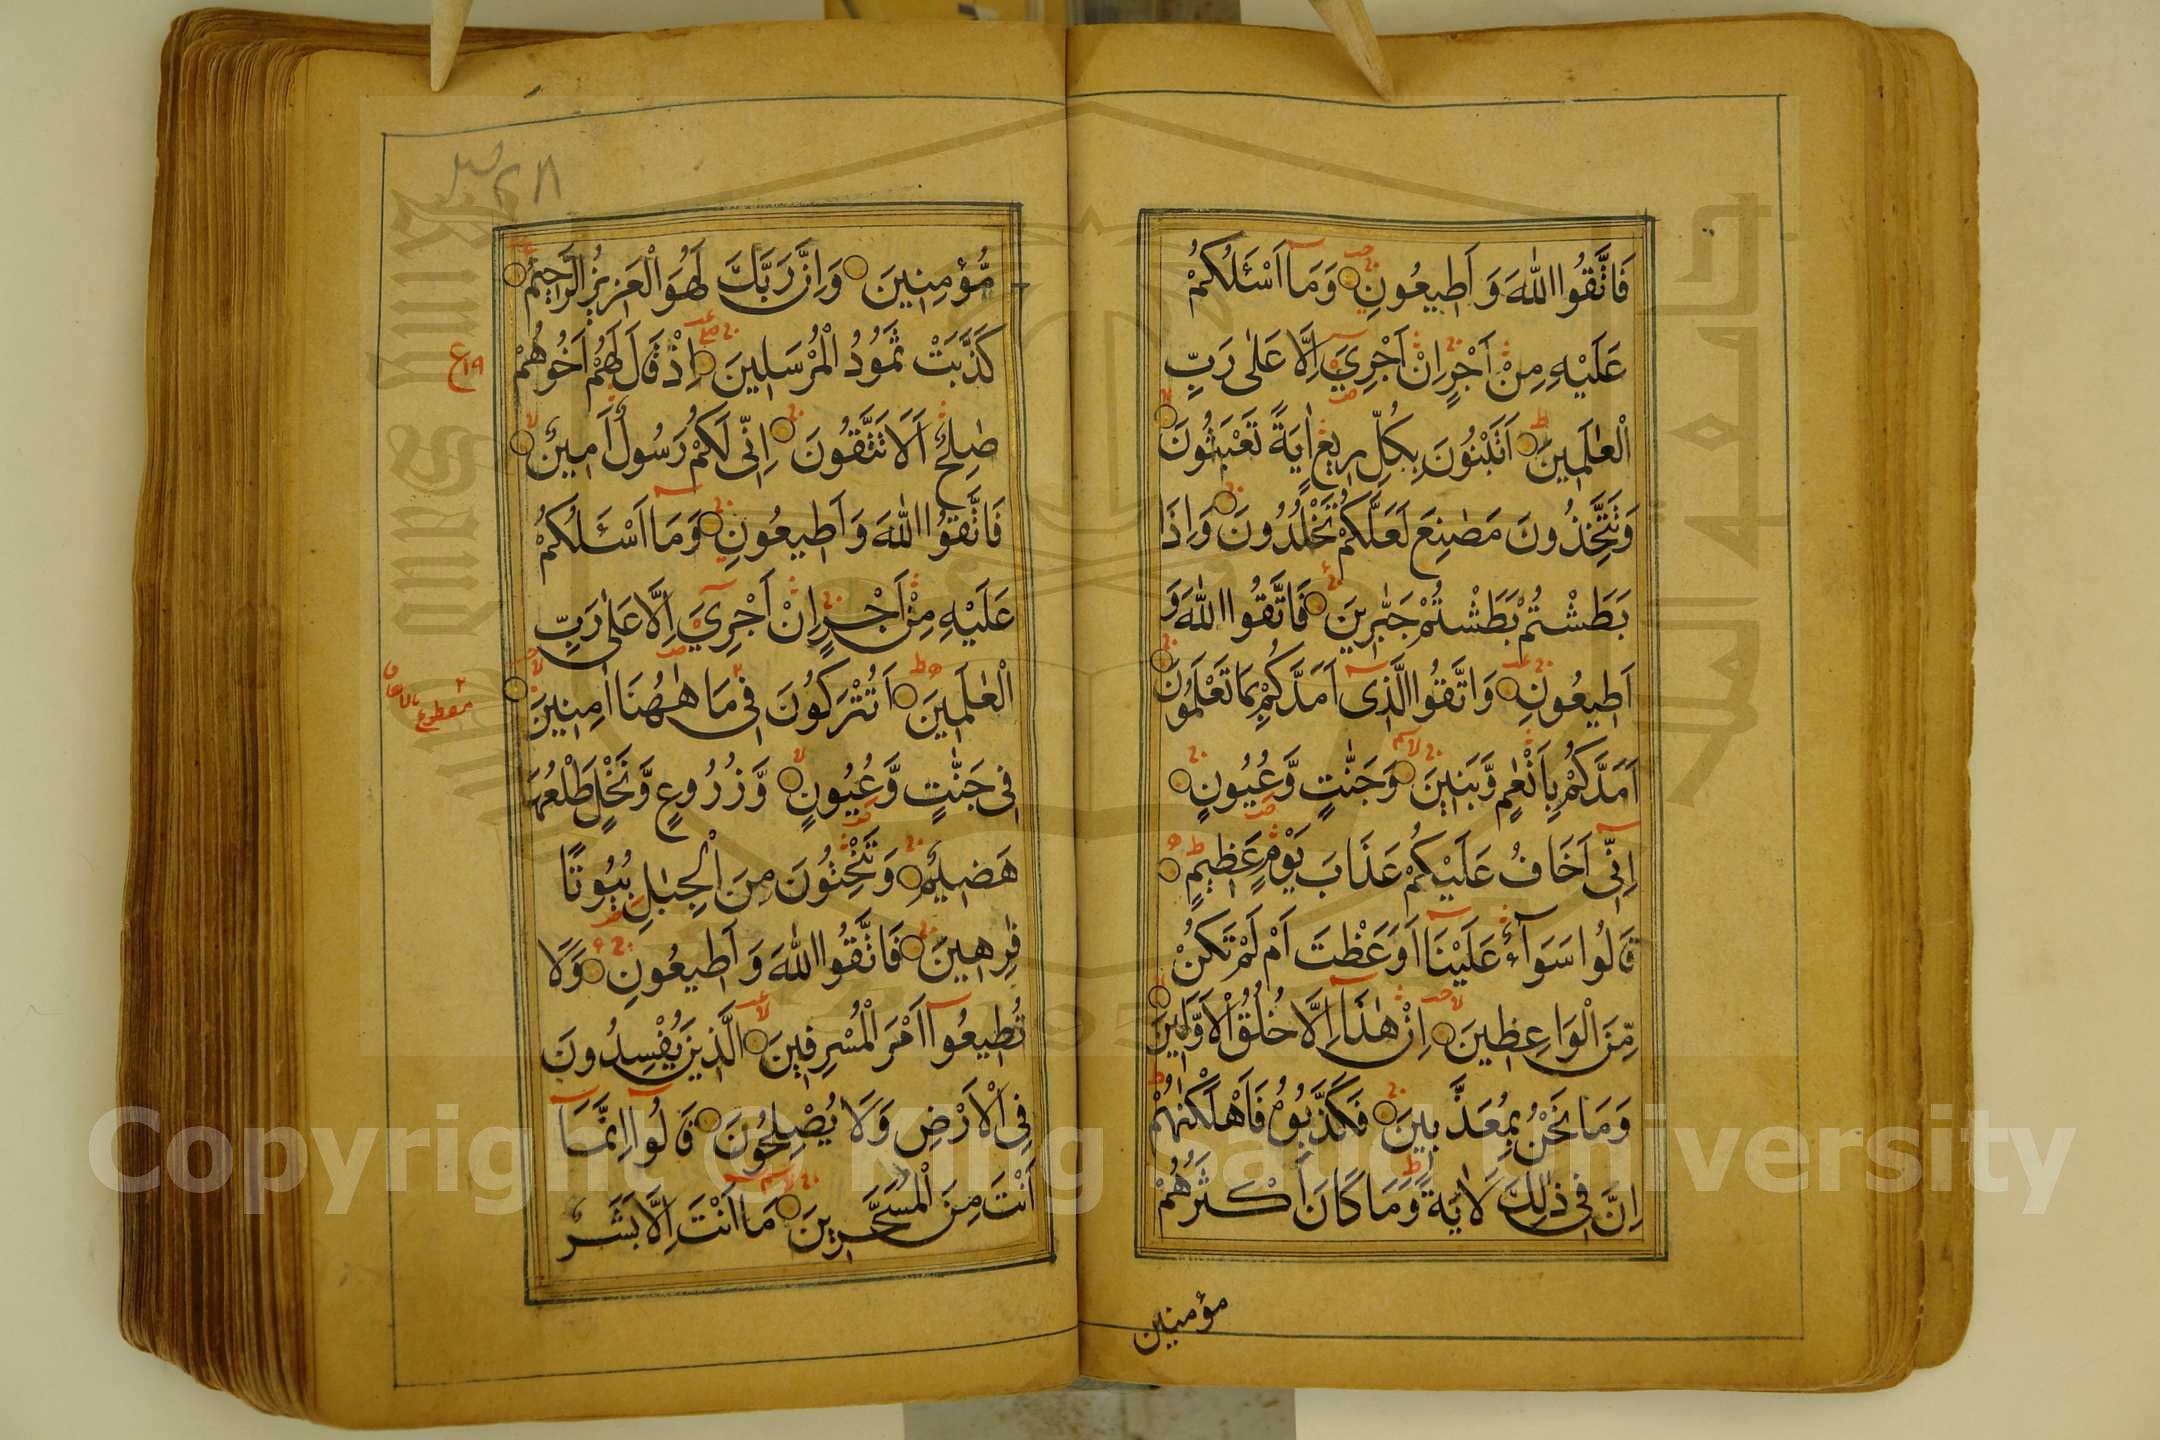 فَاتَّقُوا اللّٰهَ وَ اَطِيعُونِ وَمَا اَسْـَٔلُكُمْ
عَلَيْهِ مِنْ اَجْرٍ اِنْ اَجْرِيَ اِلَّا عَلٰى رَبِّ
الْعٰلَمِينَ اَتَبْنُونَ بِكُلِّ رِيعٍ اٰيَةً تَعْبَثُونَ
وَتَتَّخِذُونَ مَصٰنِعَ لَعَلَّكُمْ تَخْلُدُونَ وَاِذَا
بَطَشْتُمْ بَطَشْتُمْ جَبّٰرِينَ فَاتَّقُوا اللّٰهَ وَ
اَطِيعُونِ وَاتَّقُوا الَّذِى اَمَدَّكُمْ بِمَا تَعْلَمُونَ
اَمَدَّكُمْ بِاَنْعٰمٍ وَّبَنِينَ وَجَنّٰتٍ وَّعُيُونٍ
اِنِّى اَخَافُ عَلَيْكُمْ عَذَابَ يَوْمٍ عَظِيمٍ
قَالُوا سَوَآءٌ عَلَيْنَا اَوَعَظْتَ اَمْ لَمْ تَكُنْ
مِّنَ الْوَاعِظِينَ اِنْ هٰذَا اِلَّا خُلُقُ الْاَوَّلِينَ
وَمَا نَحْنُ بِمُعَذَّبِينَ فَكَذَّبُوهُ فَاَهْلَكْنٰهُمْ
اِنَّ فِى ذٰلِكَ لَاٰيَةً وَمَا كَانَ اَكْثَرُهُمْ
مؤمنين
مُّؤْمِنِينَ وَاِنَّ رَبَّكَ لَهُوَ الْعَزِيزُ الرَّحِيمُ
كَذَّبَتْ ثَمُودُ الْمُرْسَلِينَ اِذْ قَالَ لَهُمْ اَخُوهُمْ
صٰلِحٌ اَلَا تَتَّقُونَ اِنِّى لَكُمْ رَسُولٌ اَمِينٌ
فَاتَّقُوا اللّٰهَ وَاَطِيعُونِ وَمَا اَسْـَٔلُكُمْ
عَلَيْهِ مِنْ اَجْرٍ اِنْ اَجْرِيَ اِلَّا عَلٰى رَبِّ
الْعٰلَمِينَ اَتُتْرَكُونَ فِى مَا هٰهُنَا اٰمِنِينَ
فِى جَنّٰتٍ وَّعُيُونٍ وَّزُرُوعٍ وَّنَخْلٍ طَلْعُهَا
هَضِيمٌ وَتَنْحِتُونَ مِنَ الْجِبَالِ بُيُوتًا
فٰرِهِينَ فَاتَّقُوا اللّٰهَ وَ اَطِيعُونِ وَلَا
تُطِيعُوا اَمْرَ الْمُسْرِفِينَ الَّذِينَ يُفْسِدُونَ
فِى الْاَرْضِ وَلَا يُصْلِحُونَ قَالُوا اِنَّمَا
اَنْتَ مِنَ الْمُسَحَّرِينَ مَا اَنْتَ اِلَّا بَشَرٌ
Copyright © King Saud University